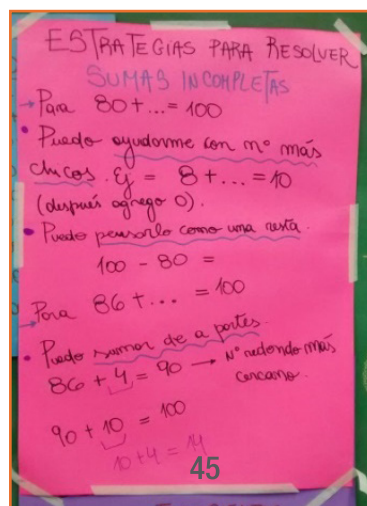 ESTRATEGIAS PARA RESOLVER
SUMAS INCOMPLETAS
→ Para 80 + ... = 100
• Puedo ayudarme con nº más
chicos. Ej = 8 + ... = 10
(después agrego 0).
• Puedo pensarlo como una resta.
100 - 80 =
→ Para 86 + ... = 100
• Puedo sumar de a partes.
86 + 4 = 90 → Nº redondo más
cercano.
90 + 10 = 100
10 + 4 = 14
45